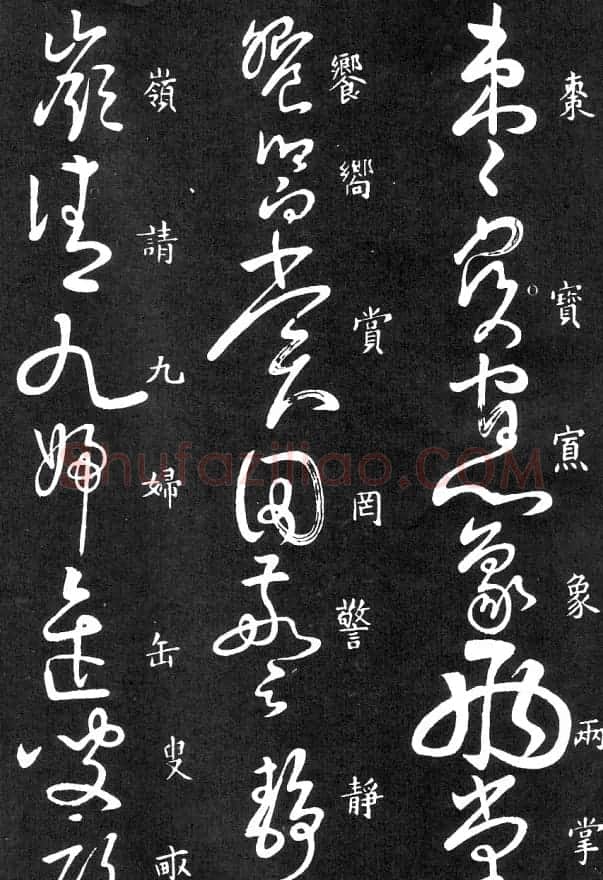 棗 寶 象 兩 掌
饗 嚮 賞 罔 警 靜
嶺 請 九 婦 缶 叟 畝
Shufaziliao.COM